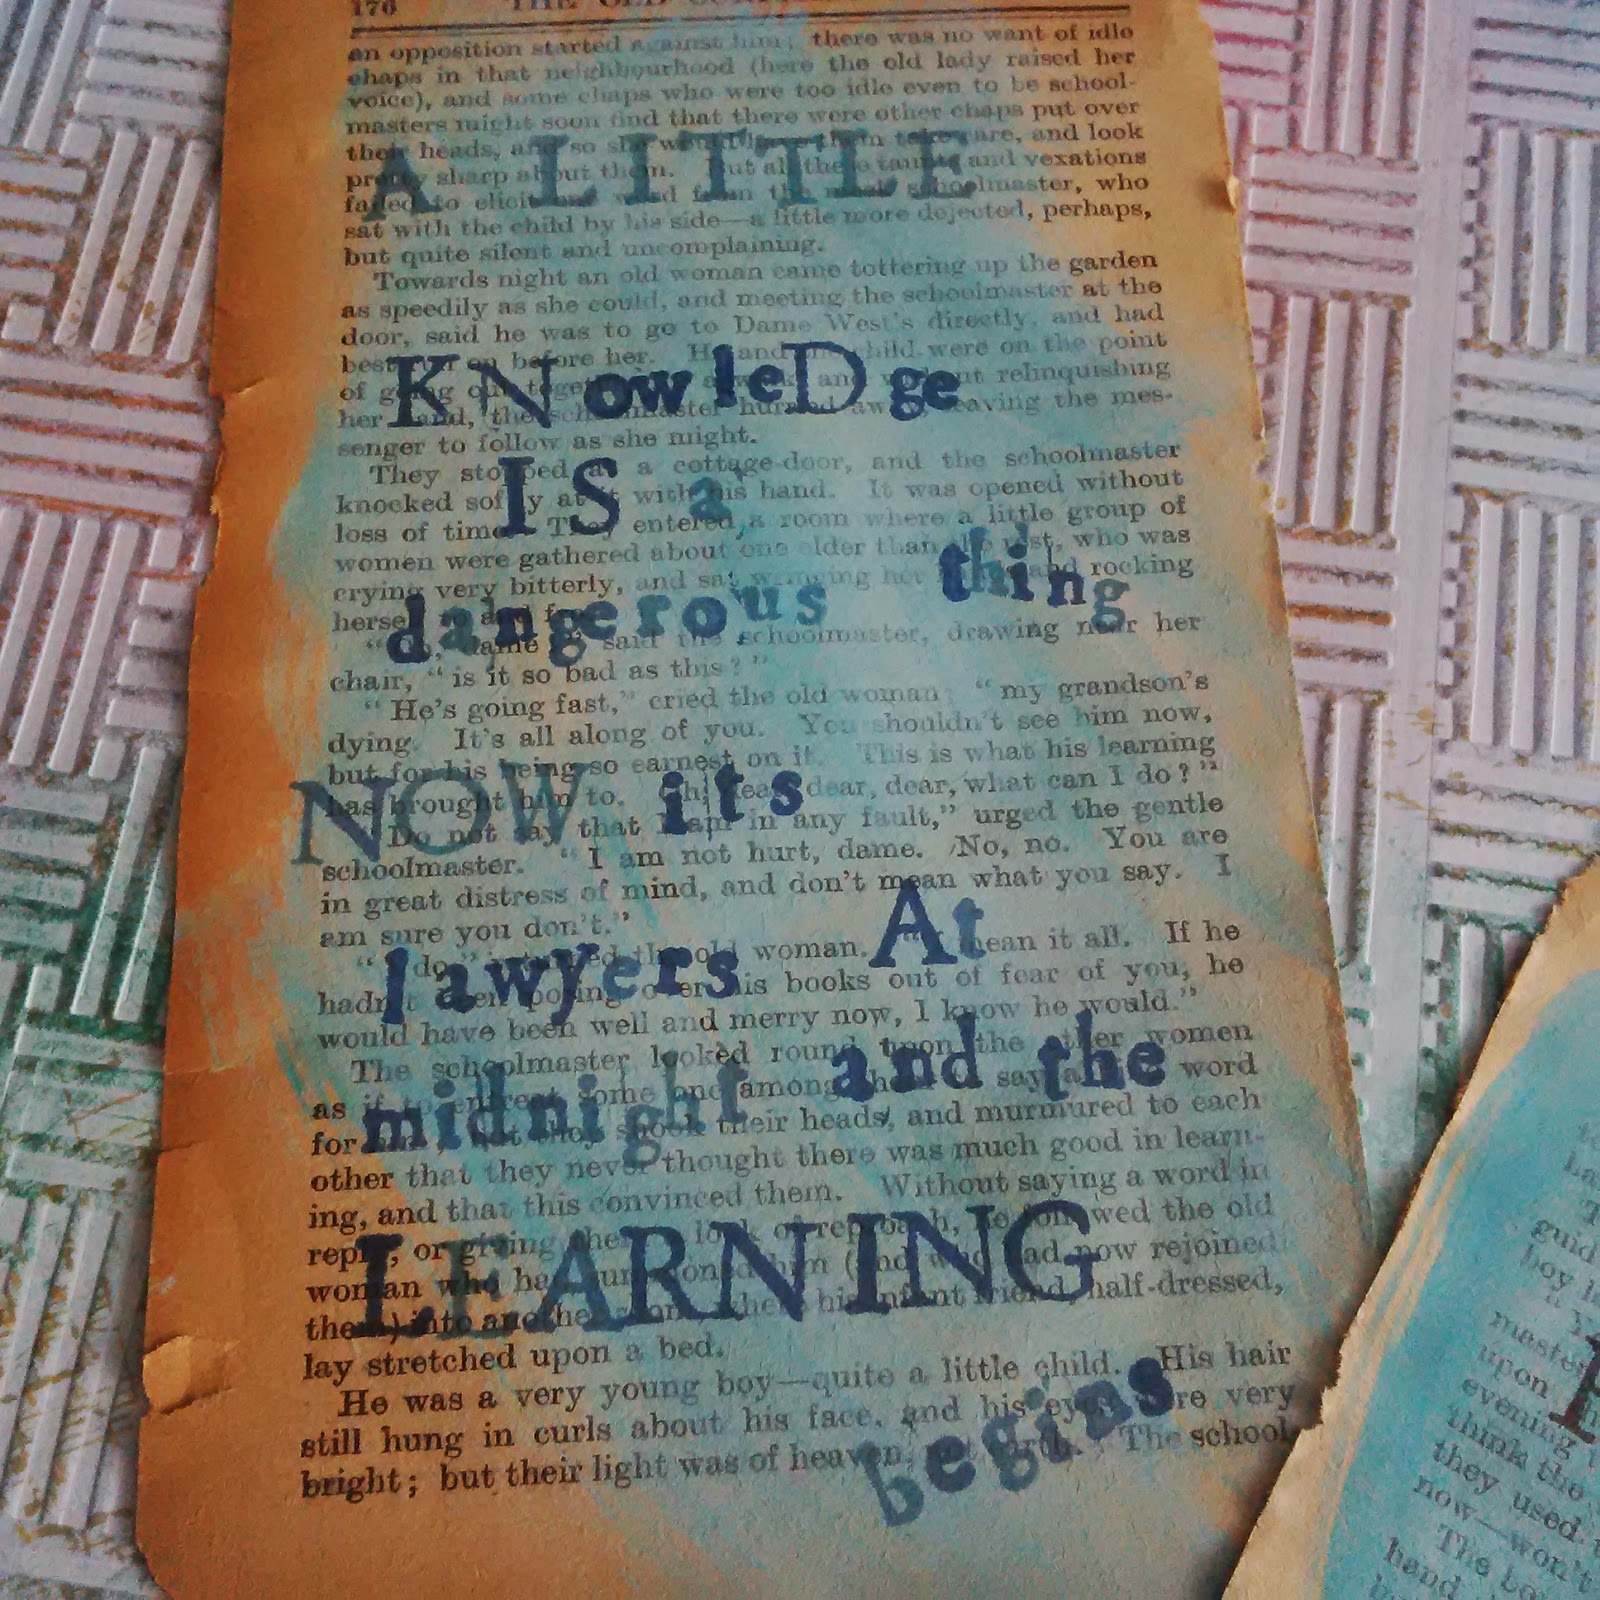 176 THE OLD
an opposition started against him; there was no want of idle
chaps in that neighbourhood (here the old lady raised her
voice), and some chaps who were too idle even to be school-
masters might soon find that there were other chaps put over
their heads, and so she would have them take care, and look
A LITTLE
pretty sharp about them. But all these taunts and vexations
failed to elicit one word from the meek schoolmaster, who
sat with the child by his side—a little more dejected, perhaps,
but quite silent and uncomplaining.
Towards night an old woman came tottering up the garden
as speedily as she could, and meeting the schoolmaster at the
door, said he was to go to Dame West's directly, and had
best run on before her. He and the child were on the point
KNowleDge
of going out together for a walk, and without relinquishing
her hand, the schoolmaster hurried away, leaving the mes-
senger to follow as she might.
They stopped at a cottage-door, and the schoolmaster
knocked softly at it with his hand. It was opened without
IS a
loss of time. They entered a room where a little group of
women were gathered about one older than the rest, who was
crying very bitterly, and sat wringing her hands and rocking
dangerous thing
herself to and fro.
dame said the schoolmaster, drawing near her
chair, "is it so bad as this?"
"He's going fast," cried the old woman; "my grandson's
dying. It's all along of you. You shouldn't see him now,
but for his being so earnest on it. This is what his learning
has brought him to. Oh dear, dear, dear, what can I do?"
NOW its
"Do not say that I am in any fault," urged the gentle
schoolmaster. "I am not hurt, dame. No, no. You are
in great distress of mind, and don't mean what you say. I
am sure you don't."
At
"I do," returned the old woman. "I mean it all. If he
lawyers
hadn't been poring over his books out of fear of you, he
would have been well and merry now, I know he would."
The schoolmaster looked round upon the other women
and the
as if to entreat some one among them to say a kind word
midnight
for him, but they shook their heads, and murmured to each
other that they never thought there was much good in learn-
ing, and that this convinced them. Without saying a word in
reply, or giving them a look of reproach, he followed the old
LEARNING
woman who had summoned him (and who had now rejoined
them) into another room, where his infant friend, half-dressed,
lay stretched upon a bed.
He was a very young boy—quite a little child. His hair
still hung in curls about his face, and his eyes were very
begins
bright; but their light was of heaven, not earth. The school
guid
boy
master
upon
evening
think the
they used
now—won't
The bo
hand